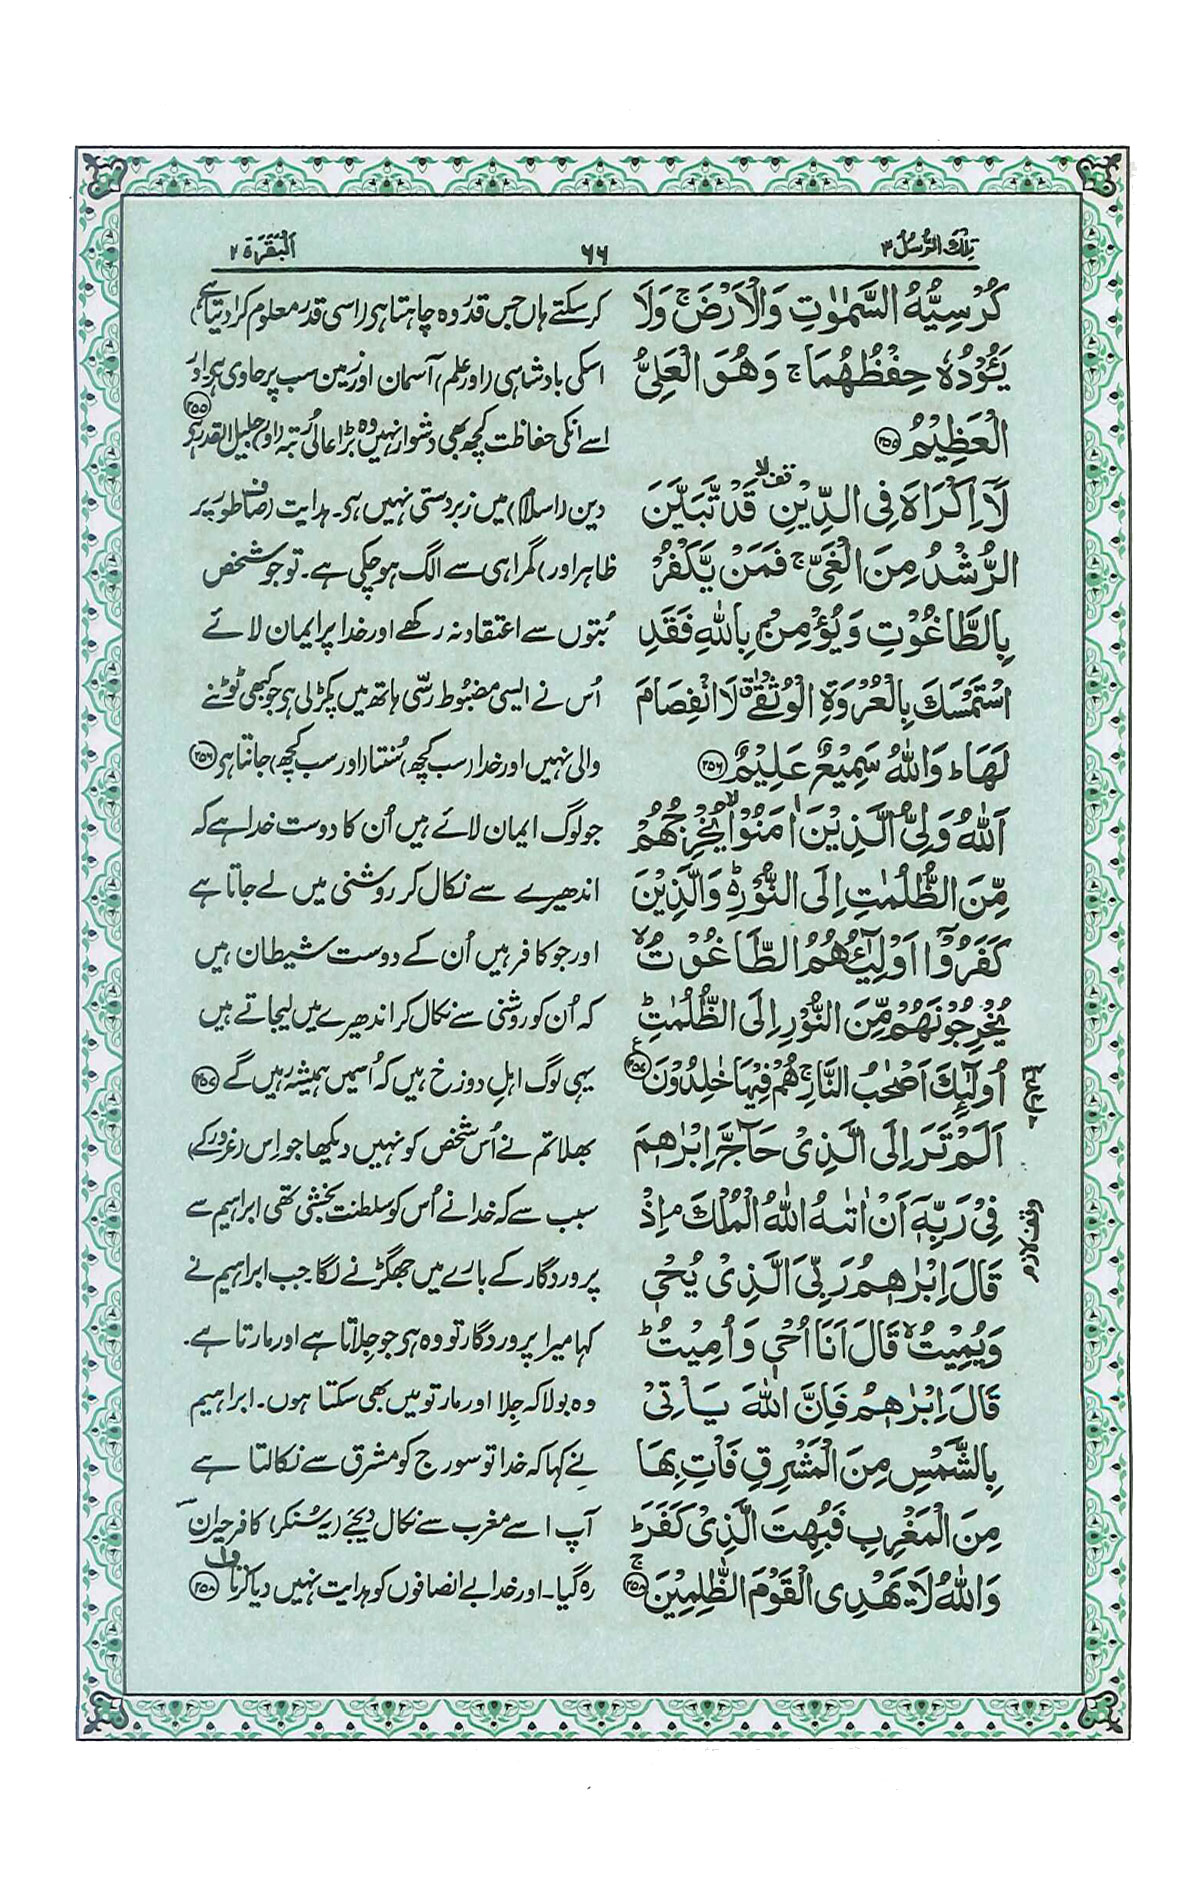 تِلْكَ الرُّسُلُ ۳
۶۶
اَلْبَقَرَة ۲
كُرْسِيُّهُ السَّمٰوٰتِ وَالْاَرْضَ ۚ وَلَا
يَـُٔوْدُهٗ حِفْظُهُمَا ۚ وَهُوَ الْعَلِيُّ
الْعَظِيْمُ ۲۵۵
لَآ اِكْرَاهَ فِى الدِّيْنِ ۙ قف قَدْ تَّبَيَّنَ
الرُّشْدُ مِنَ الْغَيِّ ۚ فَمَنْ يَّكْفُرْ
بِالطَّاغُوْتِ وَيُؤْمِنْۢ بِاللّٰهِ فَقَدِ
اسْتَمْسَكَ بِالْعُرْوَةِ الْوُثْقٰى ۗ لَا انْفِصَامَ
لَهَا ؕ وَاللّٰهُ سَمِيْعٌ عَلِيْمٌ ۲۵۶
اَللّٰهُ وَلِيُّ الَّذِيْنَ اٰمَنُوْا ۙ يُخْرِجُهُمْ
مِّنَ الظُّلُمٰتِ اِلَى النُّوْرِ ؕ وَالَّذِيْنَ
كَفَرُوْٓا اَوْلِيٰٓـُٔهُمُ الطَّاغُوْتُ ۙ
يُخْرِجُوْنَهُمْ مِّنَ النُّوْرِ اِلَى الظُّلُمٰتِ ؕ
اُولٰٓئِكَ اَصْحٰبُ النَّارِ ۚ هُمْ فِيْهَا خٰلِدُوْنَ ۲۵۷ ع
اَلَمْ تَرَ اِلَى الَّذِىْ حَآجَّ اِبْرٰهٖمَ
فِىْ رَبِّهٖٓ اَنْ اٰتٰىهُ اللّٰهُ الْمُلْكَ ۘ اِذْ
قَالَ اِبْرٰهٖمُ رَبِّىَ الَّذِىْ يُحْيٖ
وَيُمِيْتُ ۙ قَالَ اَنَا اُحْيٖ وَاُمِيْتُ ؕ
قَالَ اِبْرٰهٖمُ فَاِنَّ اللّٰهَ يَاْتِىْ
بِالشَّمْسِ مِنَ الْمَشْرِقِ فَاْتِ بِهَا
مِنَ الْمَغْرِبِ فَبُهِتَ الَّذِىْ كَفَرَ ؕ
وَاللّٰهُ لَا يَهْدِى الْقَوْمَ الظّٰلِمِيْنَ ۚ ۲۵۸
وقف لازم
کر سکتے ہاں جس قدر وہ چاہتا ہی (اسی قدر معلوم کرا دیتا ہے)
اسکی بادشاہی (اور علم) آسمان اور زمین سب پر حاوی ہی اور
اسے انکی حفاظت کچھ بھی دشوار نہیں وہ بڑا عالی رُتبہ (اور) جلیل القدر ہی ۲۵۵
دین (اسلام) میں زبردستی نہیں ہی۔ ہدایت (صاف) طور پر
ظاہر اور) گمراہی سے الگ ہو چکی ہے۔ تو جو شخص
بُتوں سے اعتقاد نہ رکھے اور خدا پر ایمان لائے
اُس نے ایسی مضبُوط رسّی ہاتھ میں پکڑ لی ہی جو کبھی ٹوٹنے
والی نہیں اور خدا (سب کچھ) سُنتا (اور سب کچھ) جانتا ہی ۲۵۶
جو لوگ ایمان لائے ہیں اُن کا دوست خدا ہے کہ
اندھیرے سے نکال کر روشنی میں لے جاتا ہے
اور جو کافر ہیں اُن کے دوست شیطان ہیں
کہ اُن کو روشنی سے نکال کر اندھیرے میں لیجاتے ہیں
یہی لوگ اہلِ دوزخ ہیں کہ اُسمیں ہمیشہ رہیں گے ۲۵۷
بھلا تم نے اُس شخص کو نہیں دیکھا جو اِس (غرور کے)
سبب سے کہ خدا نے اُس کو سلطنت بخشی تھی ابراہیم سے
پروردگار کے بارے میں جھگڑنے لگا جب ابراہیم نے
کہا میرا پروردگار تو وہ ہی جو جِلاتا ہے اور مارتا ہے۔
وہ بولا کہ جِلا اور مار تو میں بھی سکتا ہوں۔ ابراہیم
نے کہا کہ خدا تو سورج کو مشرق سے نکالتا ہے
آپ اسے مغرب سے نکال دیجئے (یہ سُنکر) کافر حیران
رہ گیا۔ اور خدا بے انصافوں کو ہدایت نہیں دیا کرتا ۲۵۸